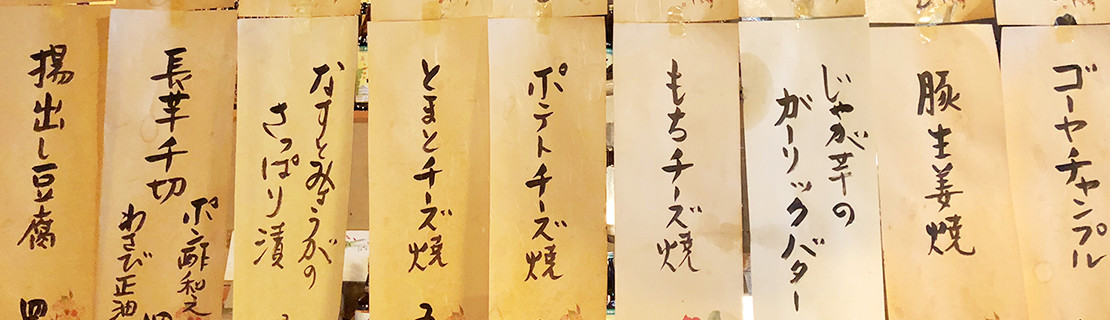 ゴーヤチャンプル
豚生姜焼
じゃが芋の
ガーリックバター
もちチーズ焼
ポテトチーズ焼
とまとチーズ焼
なすとみょうがの
さっぱり漬
長芋千切
ポン酢和え
わさび正油
揚出し豆腐
四